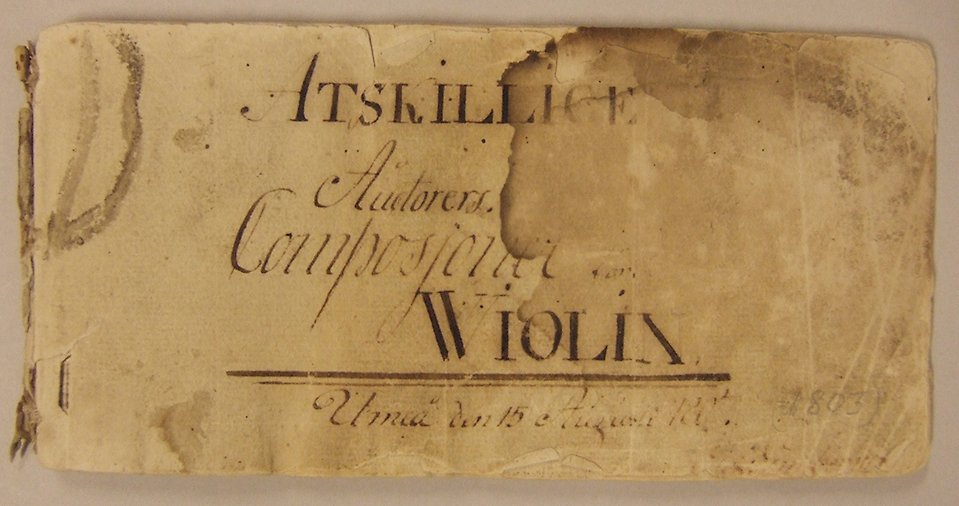 ATSKILLIGE
Auctorers.
Composjoner för
WIOLIN.
Umeå den 15 Augusti
1803